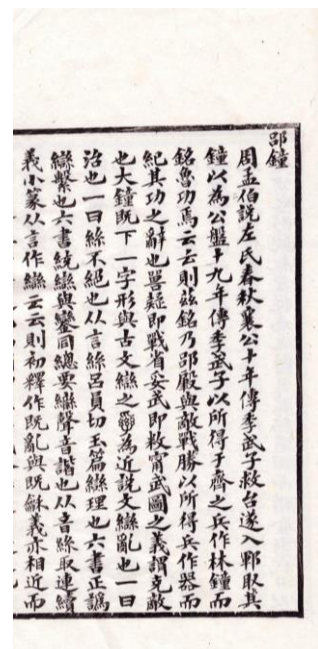 郘鐘
周孟伯説左氏春秋襄公十年傳季武子救台遂入鄆取其
鐘以為公盤十九年傳季武子以所得于齊之兵作林鐘而
銘魯功焉云云則茲銘乃郘㡿與敵戰勝以所得兵作器而
紀其功之辭也嘼即戰省妄武即敉甯武圖之義謂克敵
也大鐘既下一字形與古文䜌之為近説文䜌亂也一曰
治也一曰絲不絕也从言絲呂員切玉篇䜌理也六書正譌
䜌繫也六書統䜌與鑾同總要䜌聲音諧也从音絲取連續
義小篆从言作䜌云云則初釋作既亂與既龢義亦相近而